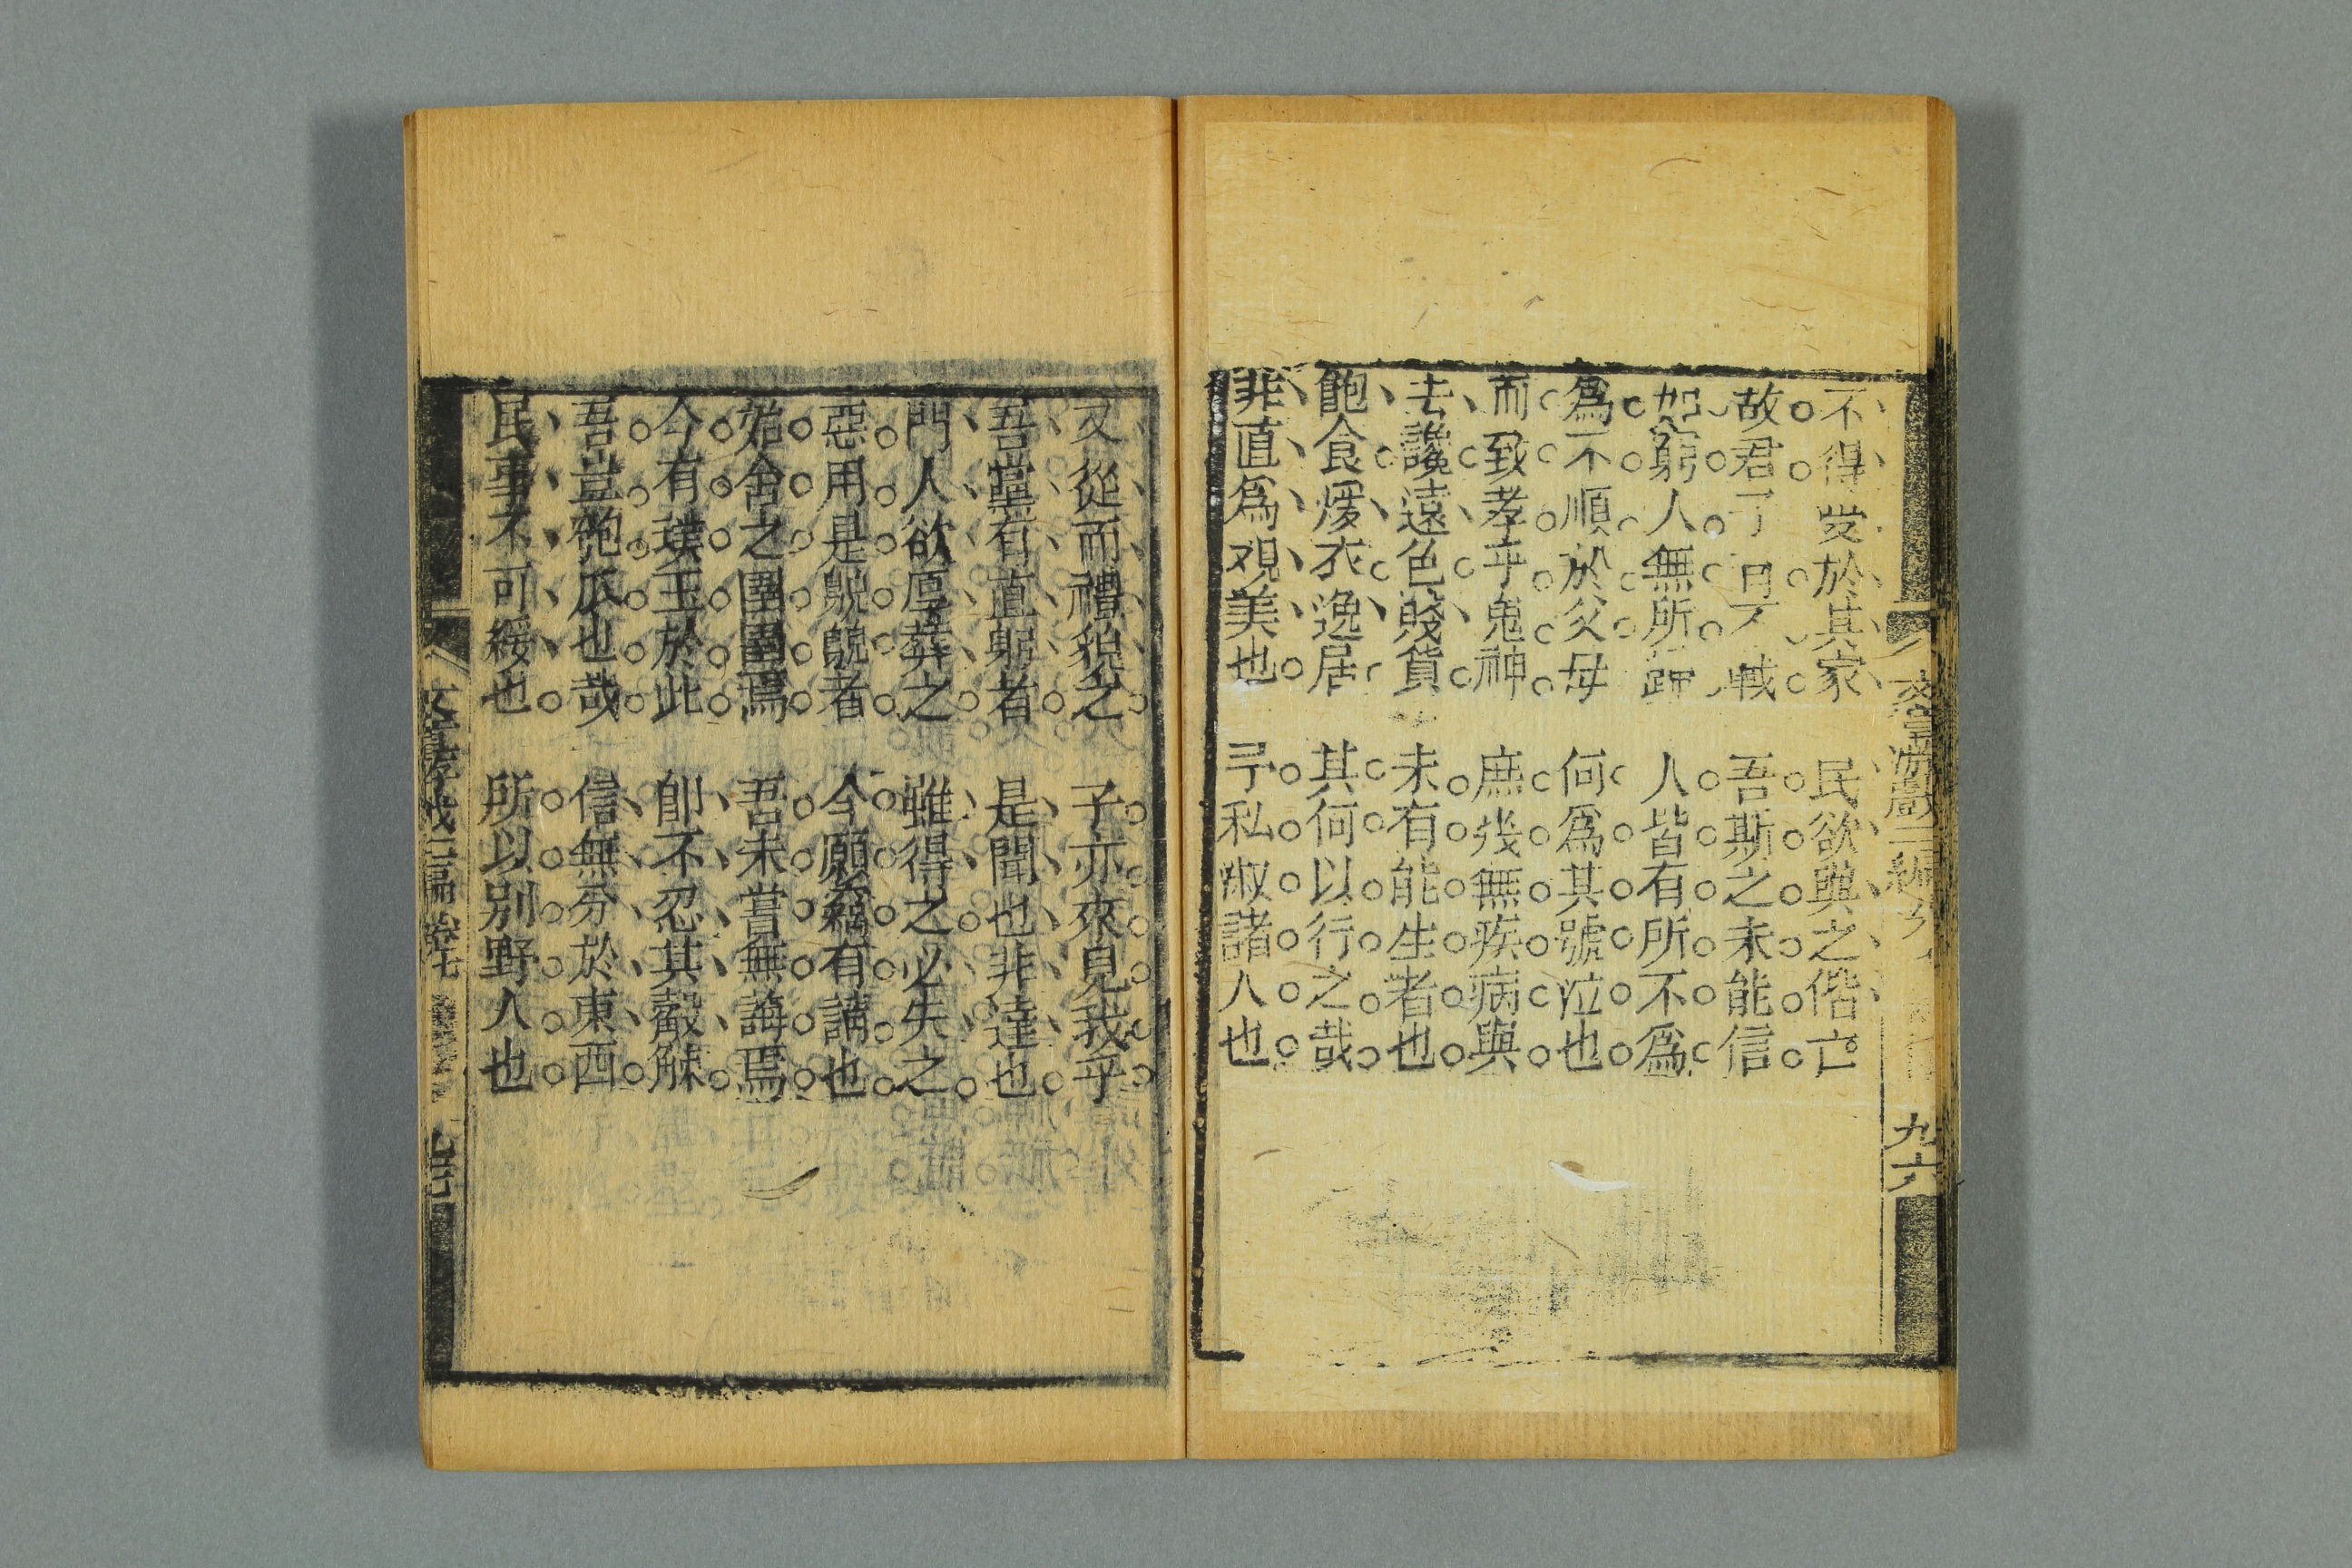 不得受於其家　民欲與之偕亡
故君子曰不戒　吾斯之未能信
如窮人無所歸　人皆有所不爲
爲不順於父母　何爲其號泣也
而致孝乎鬼神　庶幾無疾病與
去讒遠色賤貨　未有能生者也
飽食煖衣逸居　其何以行之哉
非直爲觀美也　予私淑諸人也
文章游戲三編卷
九六
又從而禮貌之　子亦來見我乎
吾黨有直躬者　是聞也非達也
門人欲厚葬之　雖得之必失之
惡用是鶃鶃者　今願竊有請也
始舍之圉圉焉　吾未嘗無誨焉
今有璞玉於此　卽不忍其觳觫
吾豈匏瓜也哉　信無分於東西
民事不可緩也　所以別野人也
文章游戲三編卷七